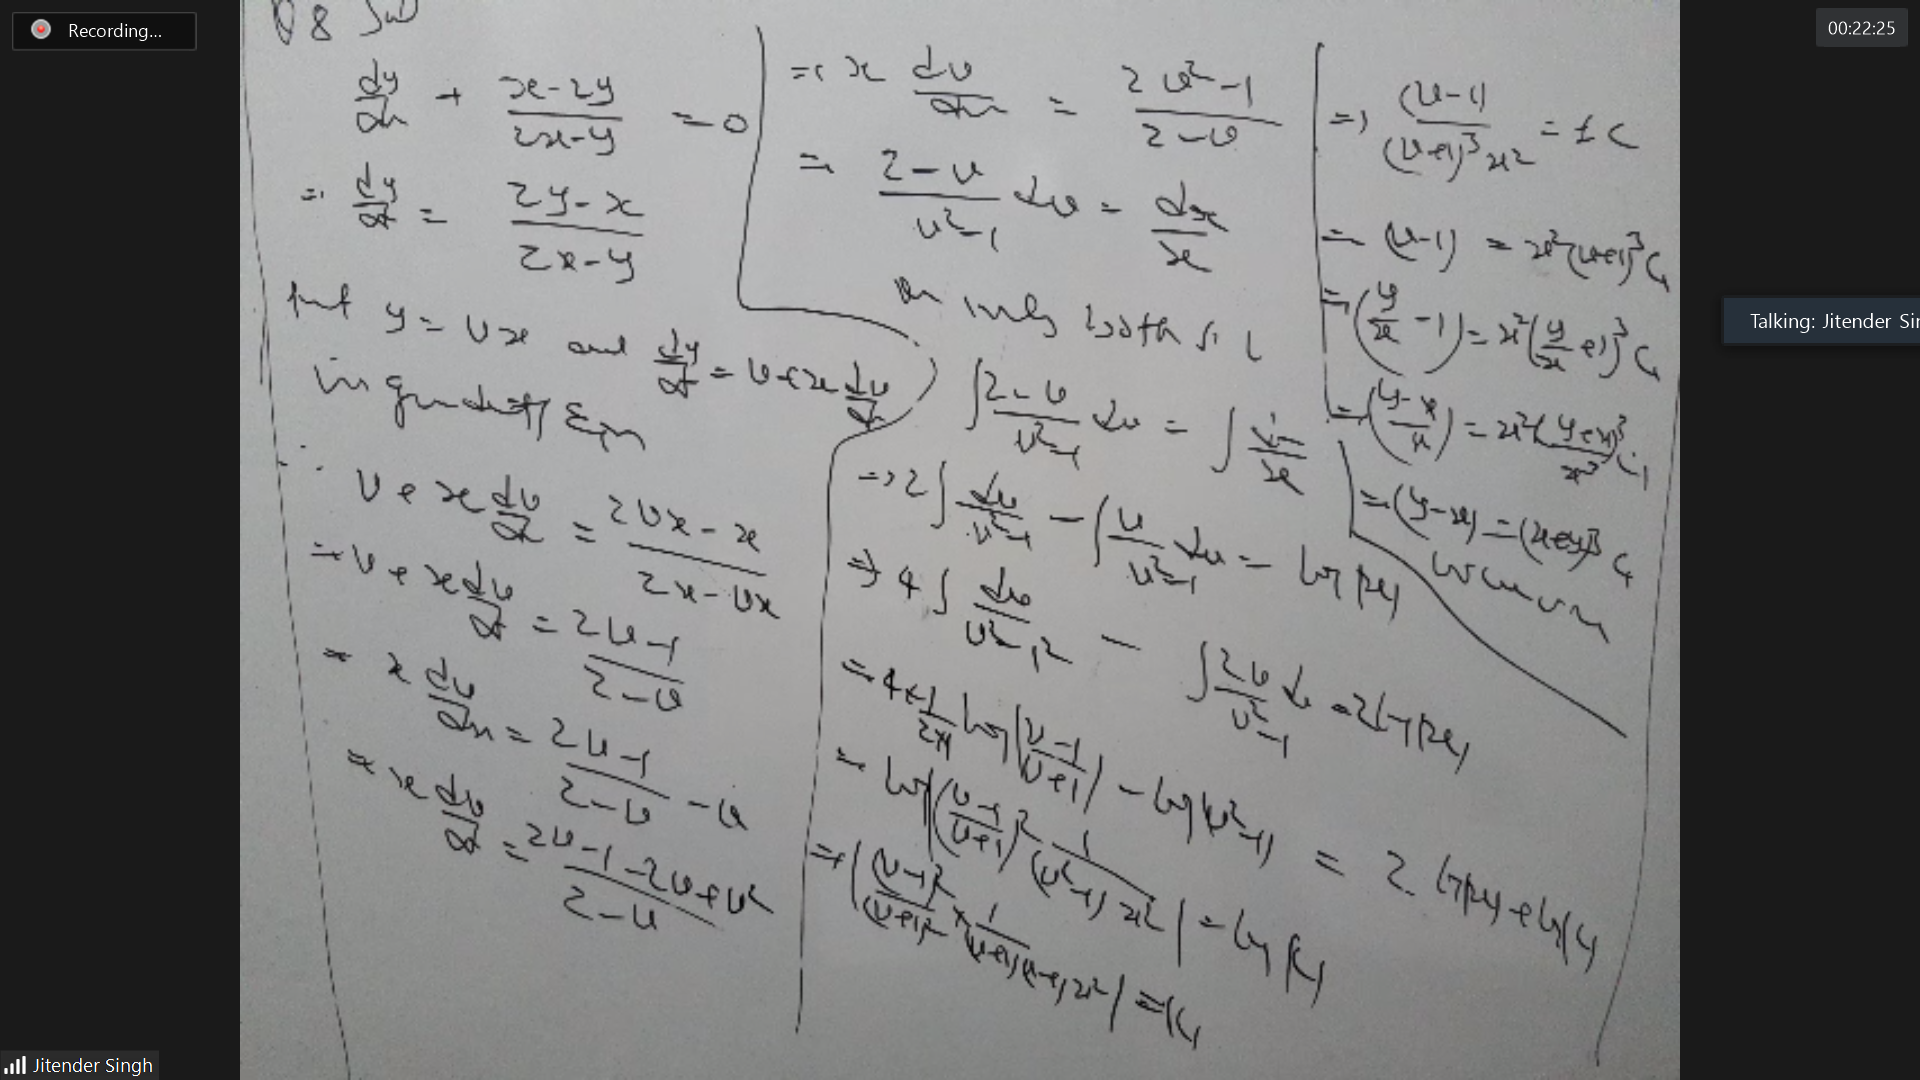 Recording...
00:22:25
Q 8 Sol
dy/dx + (x-2y)/(2x-y) = 0
=> dy/dx = (2y-x)/(2x-y)
Put y = vx and dy/dx = v+x dv/dx
in given diff Eqn
∴ v+x dv/dx = (2vx-x)/(2x-vx)
=> v+x dv/dx = (2v-1)/(2-v)
=> x dv/dx = (2v-1)/(2-v) - v
=> x dv/dx = (2v-1-2v+v²)/(2-v)
=> x dv/dx = (2v²-1)/(2-v)
=> (2-v)/(v²-1) dv = dx/x
both
∫(2-v)/(v²-1) dv = ∫dx/x
=> 2∫dv/(v²-1) - ∫v/(v²-1) dv = log|x|
=> 4∫dv/(v²-1²) - ∫2v/(v²-1) dv = 2log|x|
=> 4×1/(2×1) log|(v-1)/(v+1)| - log|v²-1| = 2 log|x|+log|c|
=> log|((v-1)/(v+1))² 1/((v²-1)x²)| = log|c|
=> |(v-1)²/(v+1)² × 1/((v+1)(v-1)x²)| = |c|
=> (v-1)/((v+1)³x²) = ±c
=> (v-1) = x²(v+1)³c₁
=> (y/x -1) = x²(y/x +1)³c₁
=> ((y-x)/x) = x²((y+x)³/x³)c₁
=> (y-x) = (x+y)³c₁
Talking: Jitender Sin
Jitender Singh